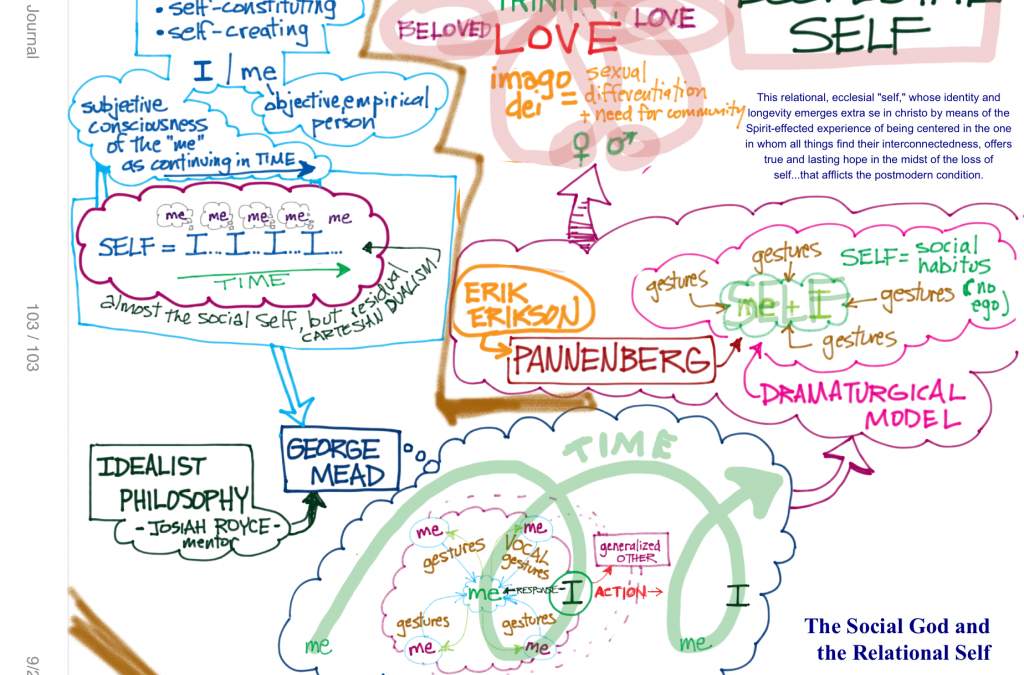 Journal
103 / 103
• self-constituting
• self-creating
I / me
subjective
consciousness
of the "me"
as continuing in TIME
objective, empirical
person
me me me me me
SELF = I...I...I...I...
TIME
almost the social self, but residual
CARTESIAN DUALISM
GEORGE
MEAD
IDEALIST
PHILOSOPHY
- JOSIAH ROYCE -
mentor
TRINITY
BELOVED
LOVE
LOVE
imago
dei
=
sexual
differentiation
+ need for community
♀ ♂
SELF
This relational, ecclesial "self," whose identity and
longevity emerges extra se in christo by means of the
Spirit-effected experience of being centered in the one
in whom all things find their interconnectedness, offers
true and lasting hope in the midst of the loss of
self...that afflicts the postmodern condition.
ERIK
ERIKSON
PANNENBERG
gestures
gestures
gestures
gestures
SELF
me + I
SELF = social
habitus
(no
ego)
DRAMATURGICAL
MODEL
TIME
me
me
gestures
VOCAL
gestures
me
RESPONSE
I
ACTION
generalized
OTHER
gestures
gestures
me
me
me
me
I
The Social God and
the Relational Self